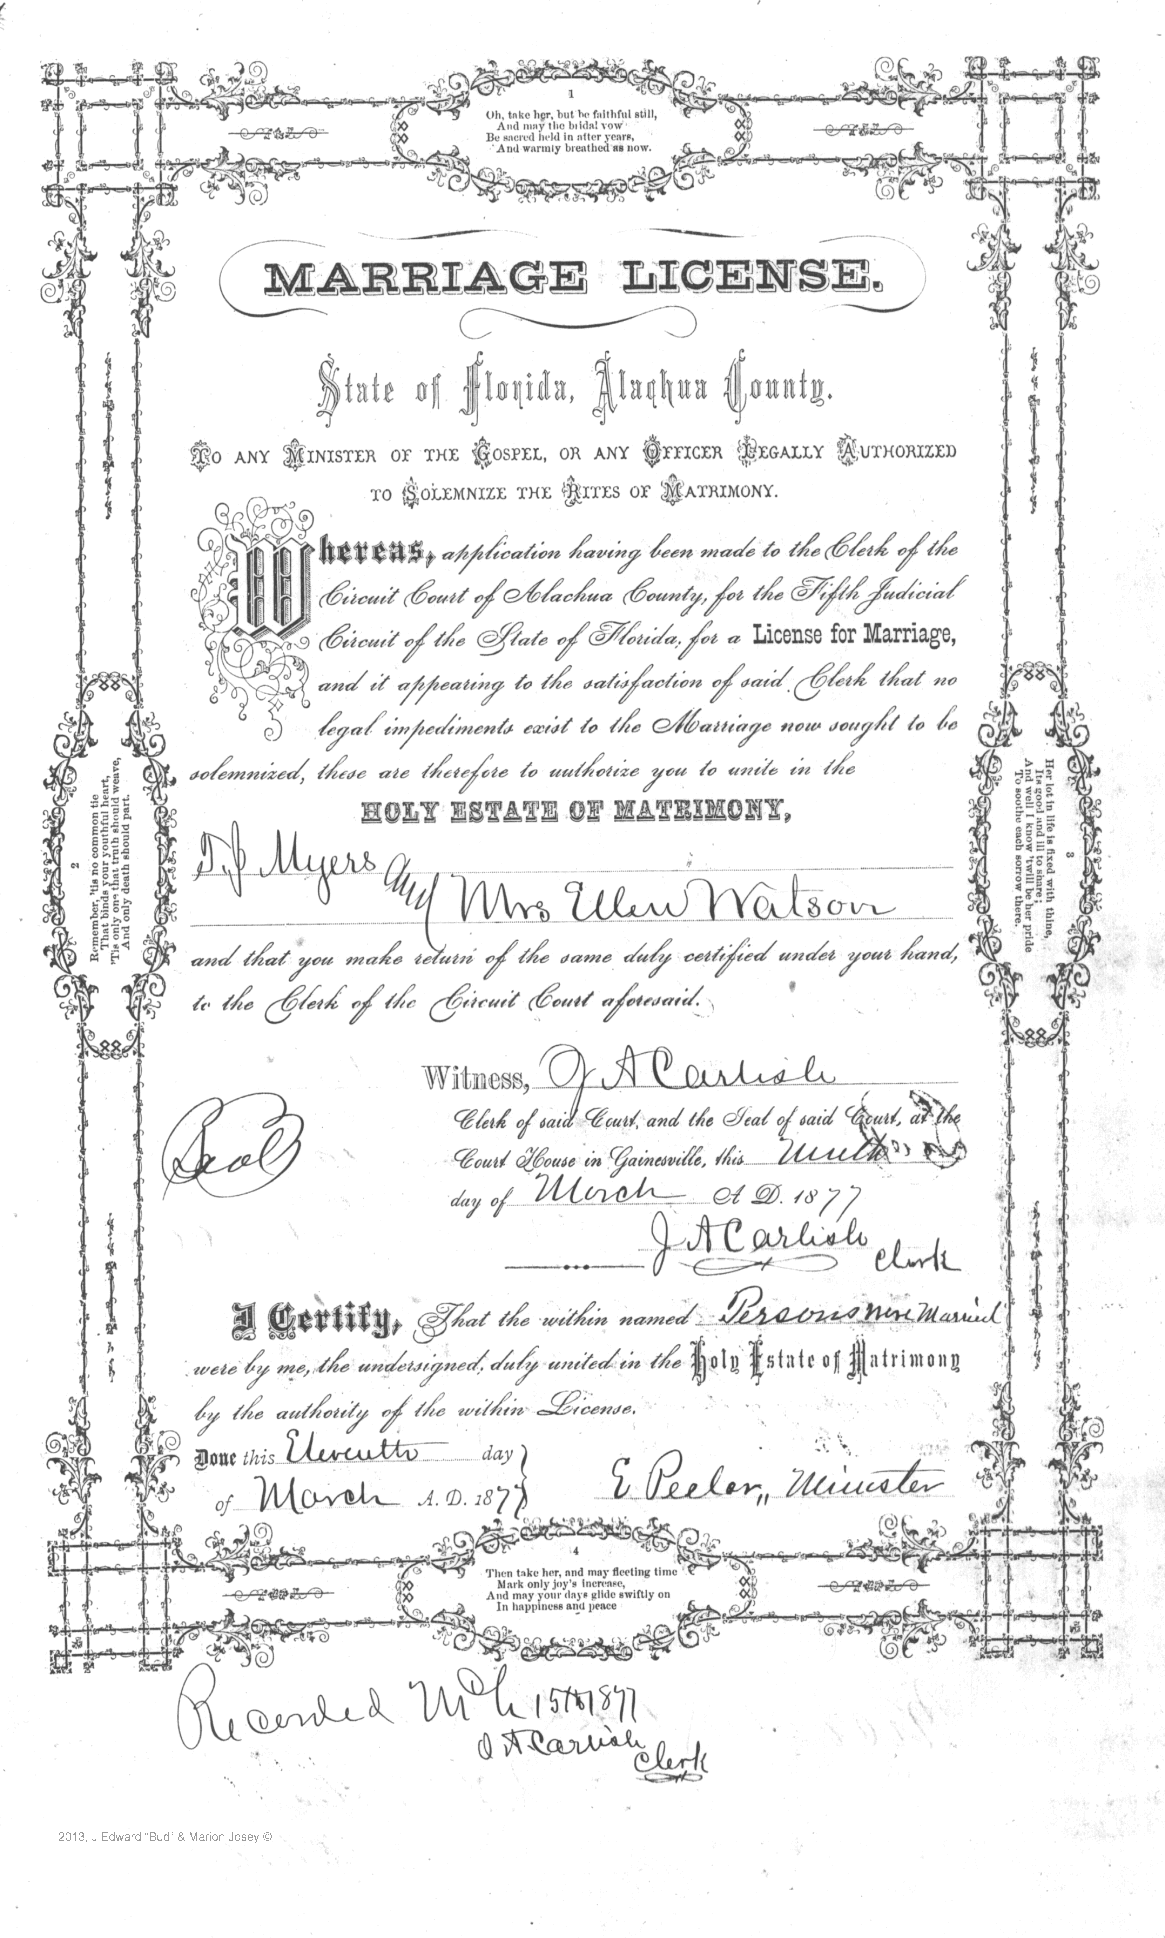 1
Oh, take her, but be faithful still,
And may the bridal vow
Be sacred held in after years,
And warmly breathed as now.
MARRIAGE LICENSE.
State of Florida, Alachua County.
TO ANY MINISTER OF THE GOSPEL, OR ANY OFFICER LEGALLY AUTHORIZED
TO SOLEMNIZE THE RITES OF MATRIMONY.
Whereas, application having been made to the Clerk of the
Circuit Court of Alachua County, for the Fifth Judicial
Circuit of the State of Florida, for a License for Marriage,
and it appearing to the satisfaction of said Clerk that no
legal impediments exist to the Marriage now sought to be
solemnized, these are therefore to authorize you to unite in the
HOLY ESTATE OF MATRIMONY,
T J Myers and
Mrs Ellen Watson
and that you make return of the same duly certified under your hand,
to the Clerk of the Circuit Court aforesaid.
2
Remember, 'tis no common tie
That binds your youthful heart,
'Tis only one that truth should weave,
And only death should part.
3
Her lot in life is fixed with thine,
Its good and ill to share;
And well I know 'twill be her pride
To soothe each sorrow there.
Witness, J A Carlisle
Seal
Clerk of said Court, and the Seal of said Court, at the
Court House in Gainesville, this Ninth
day of March A D. 1877
J A Carlisle
Clerk
I Certify, That the within named Persons were Married
were by me, the undersigned, duly united in the Holy Estate of Matrimony
by the authority of the within License.
Done this Eleventh day
of March A. D. 1877
E Peeler, Minister
4
Then take her, and may fleeting time
Mark only joy's increase,
And may your days glide swiftly on
In happiness and peace
Recorded Mch 15th 1877
J A Carlisle
Clerk
2013, J Edward "Bud" & Marion Josey ©